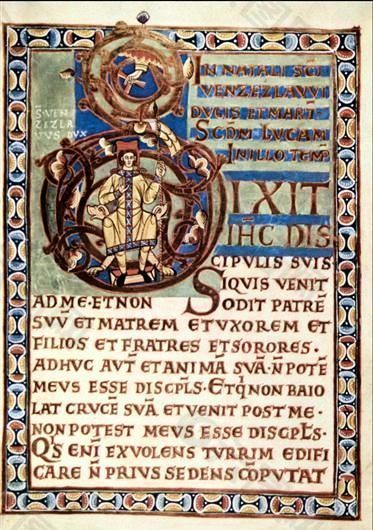 S·VEN
ZIZLA
VVS·DVX
IN NATALI SCI
VENZEZLAVVI
DVCIS ET MART̄
SCDM LVCAM
IN ILLO TEMP̄
DIXIT
IH̄C DIS
CIPVLIS SVIS
SIQVIS VENIT
AD ME·ET NON ODIT PATRĒ
SVV̄ ET MATREM ET VXOREM ET
FILIOS ET FRATRES ET SORORES·
ADHVC AVT̄ ET ANIMĀ SVĀ·N̄ POTĒ
MEVS ESSE DISCPLS·ETQ̄ NON BAIO
LAT CRVCĒ SVĀ ET VENIT POST ME·
NON POTEST MEVS ESSE DISCPLS·
QIS ENĪ EX VOLENS TVRRIM EDIFI
CARE N̄ PRIVS SEDENS CŌPVTAT